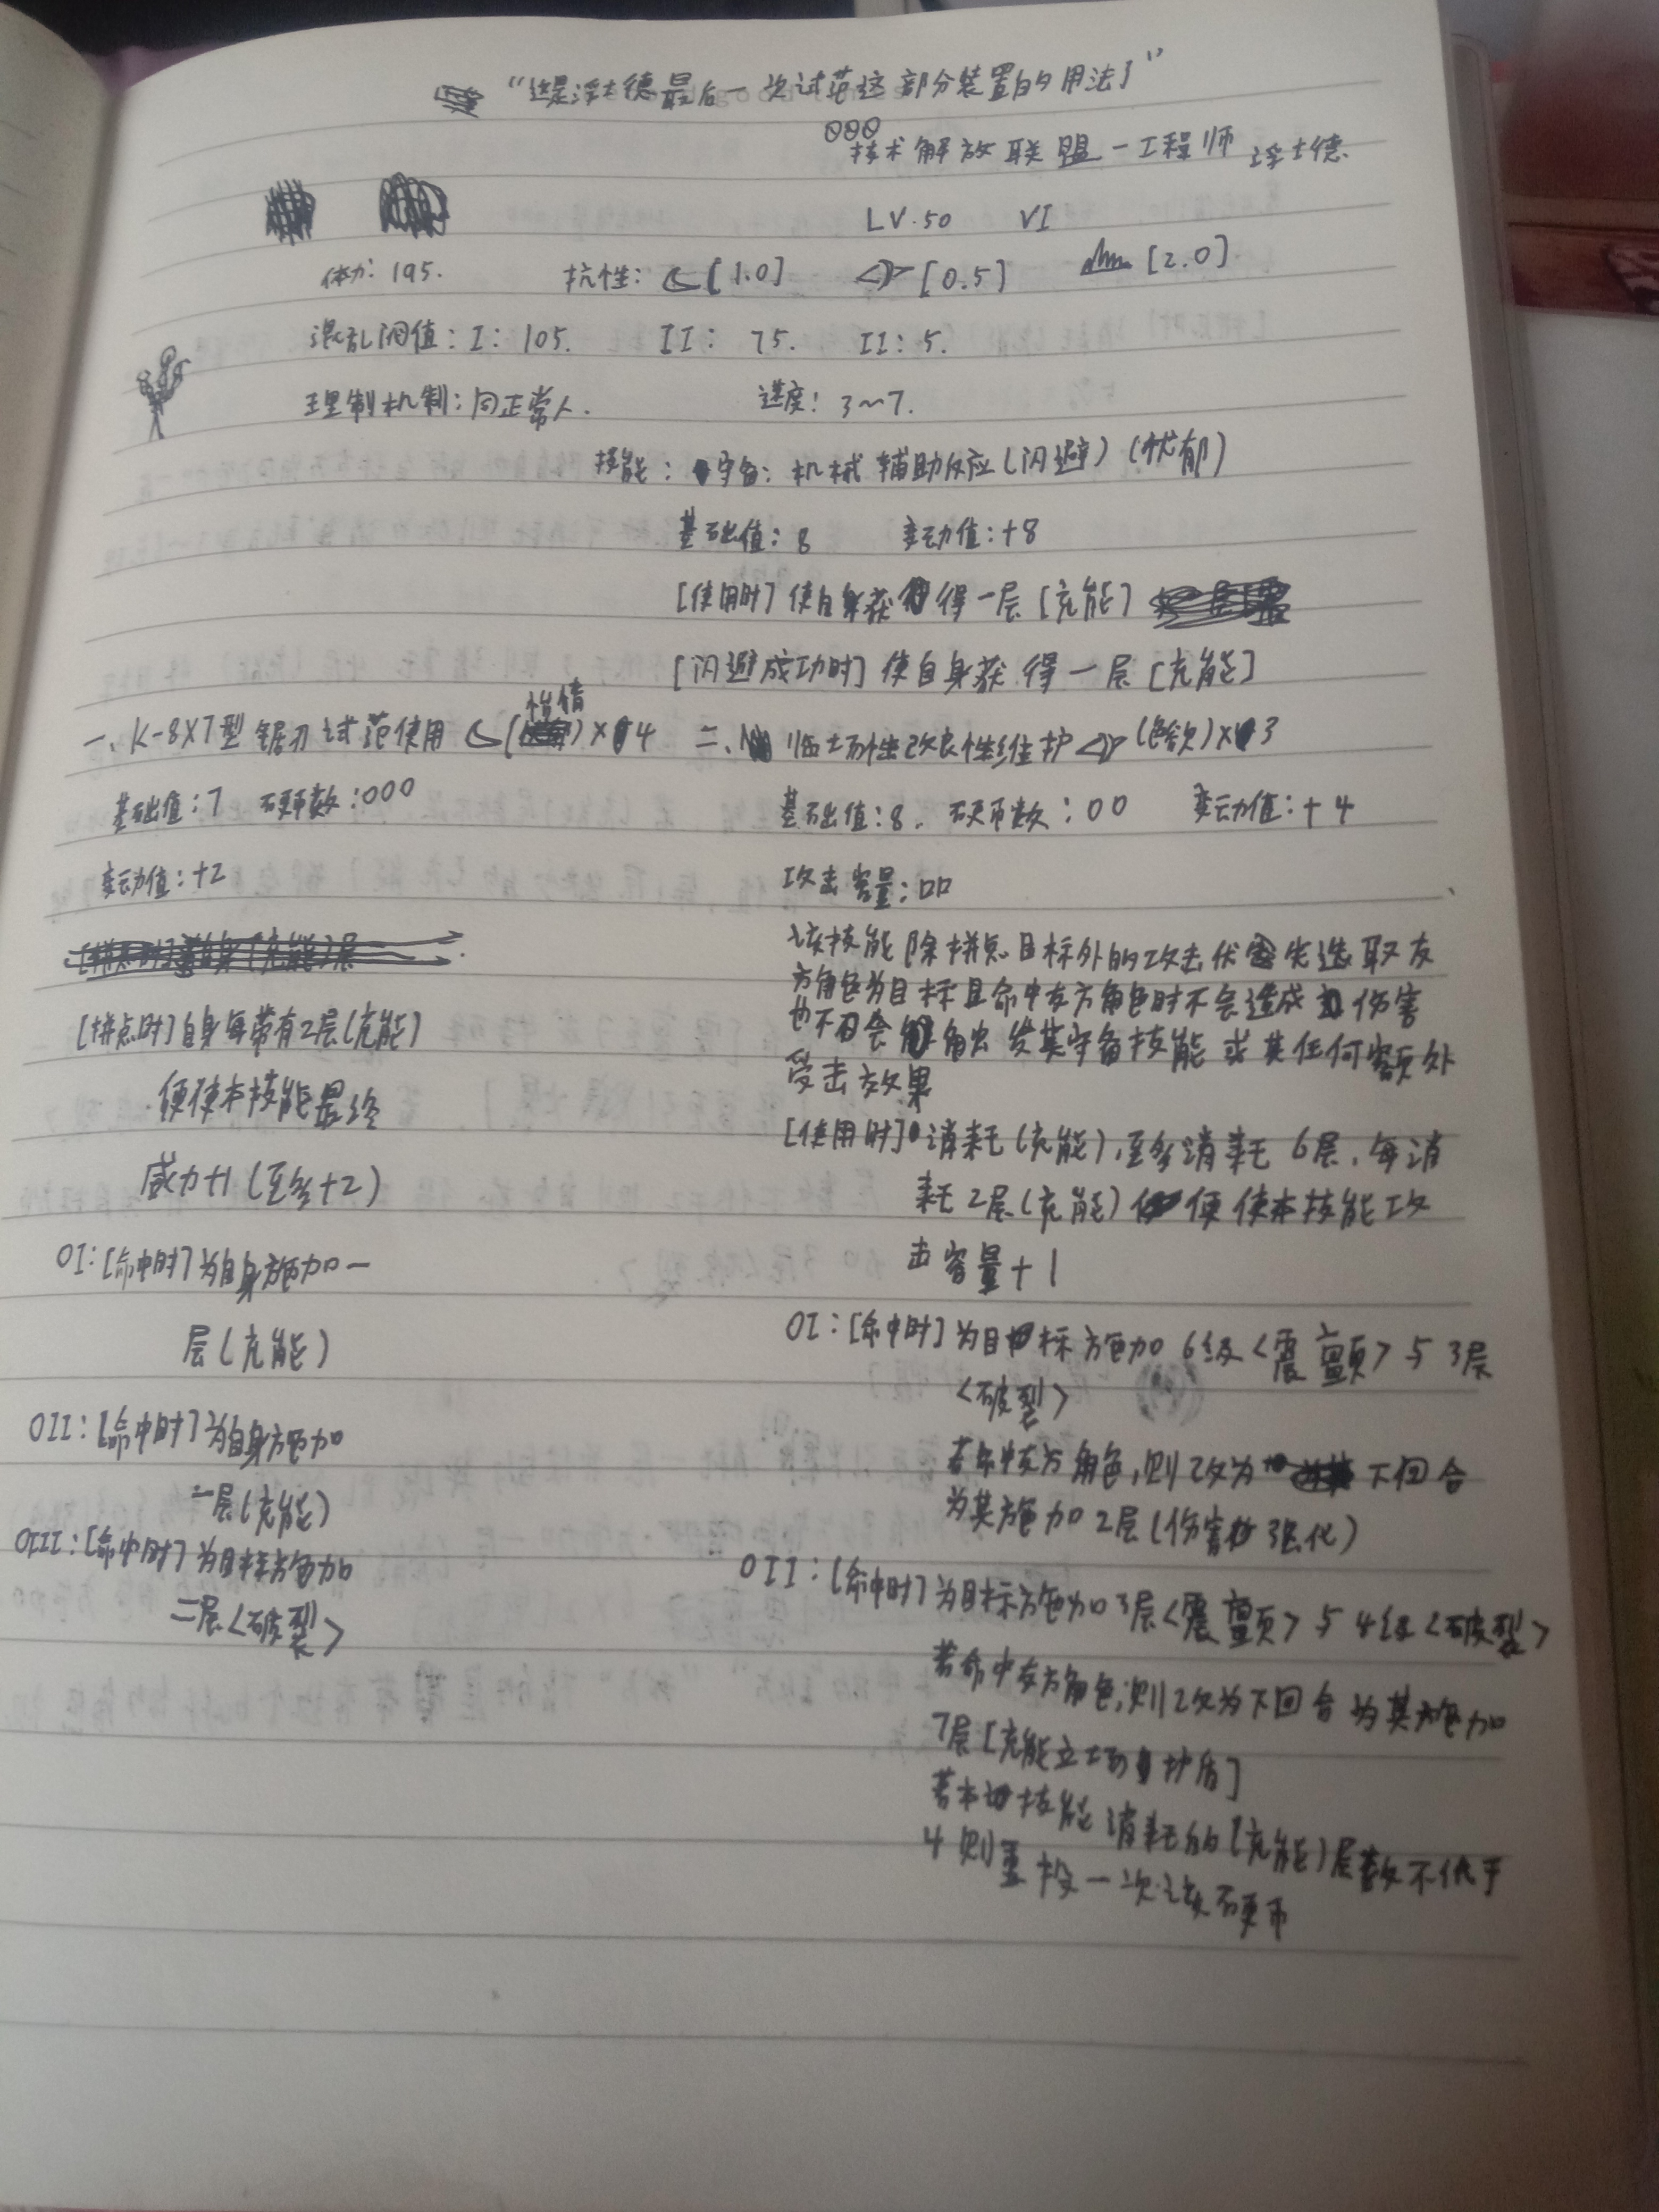 “这是浮士德最后一次试范这部分装置的用法了”
000
技术解放联盟一工程师 浮士德.
LV.50 VI
体力: 195. 抗性: [1.0] [0.5] [2.0]
混乱阈值: I: 105. II: 75. II: 5.
理制机制: 同正常人. 速度: 3~7.
技能: 守备: 机械辅助反应(闪避) (忧郁)
基础值: 8 变动值: +8
[使用时] 使自身获得一层[充能]
[闪避成功时] 使自身获得一层[充能]
一、K-8X7型锯刃试范使用 (怠惰)×4
基础值: 7 硬币数: 000
变动值: +2
[拼点时]自身每带有2层(充能)
便使本技能最终
威力+1(至多+2)
OI: [命中时]为自身施加一
层(充能)
OII: [命中时]为自身施加
一层(充能)
OIII: [命中时]为目标施加
二层<破裂>
二、临场性改良性维护 (色欲)×3
基础值: 8. 硬币数: 00 变动值: +4
攻击容量: 口口
该技能除拼点目标外的攻击优先选取友
方角色为目标且命中友方角色时不会造成伤害
也不会触发其守备技能或其任何额外
受击效果
[使用时]消耗(充能),至多消耗6层,每消
耗2层(充能)便使本技能攻
击容量+1
OI: [命中时]为目标施加6级<震颤>与3层
<破裂>
若命中友方角色,则改为下回合
为其施加2层(伤害强化)
OII: [命中时]为目标施加3层<震颤>与4级<破裂>
若命中友方角色,则改为下回合为其施加
7层[充能立场护盾]
若本技能消耗的(充能)层数不低于
4则重投一次该硬币